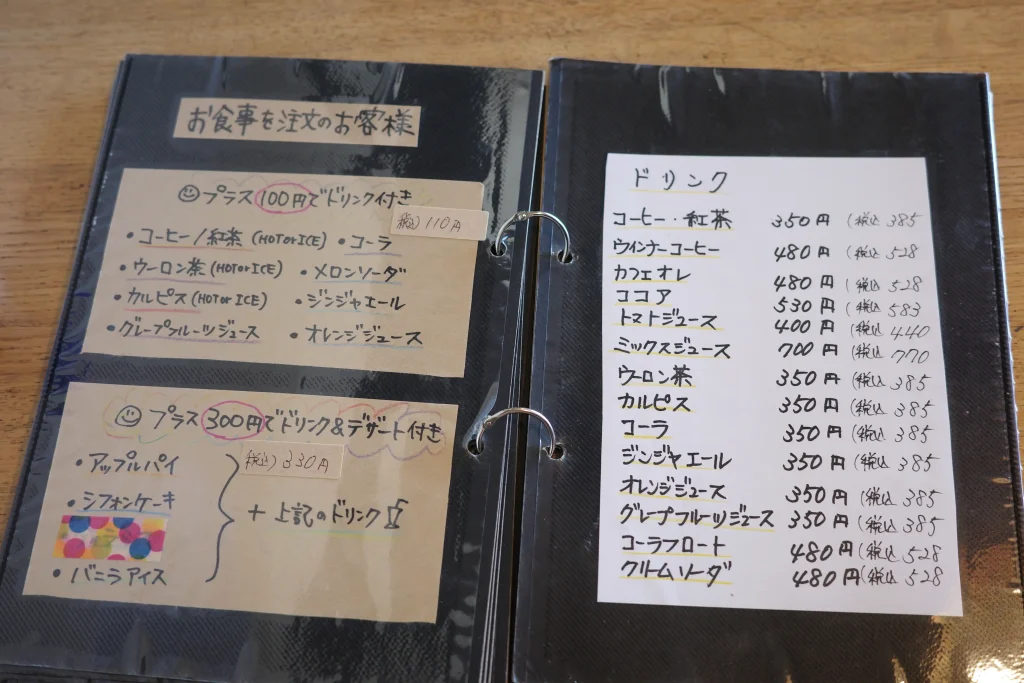 お食事を注文のお客様
プラス100円でドリンク付き
税込110円
・コーヒー/紅茶(HOTorICE) ・コーラ
・ウーロン茶(HOTorICE) ・メロンソーダ
・カルピス(HOTorICE) ・ジンジャエール
・グレープフルーツジュース ・オレンジジュース
プラス300円でドリンク&デザート付き
税込)330円
・アップルパイ
・シフォンケーキ
・バニラアイス
+上記のドリンク
ドリンク
コーヒー・紅茶 350円 (税込385
ウインナーコーヒー 480円 (税込528
カフェオレ 480円 (税込528
ココア 530円 (税込583
トマトジュース 400円 (税込440
ミックスジュース 700円 (税込770
ウーロン茶 350円 (税込385
カルピス 350円 (税込385
コーラ 350円 (税込385
ジンジャエール 350円 (税込385
オレンジジュース 350円 (税込385
グレープフルーツジュース 350円 (税込385
コーラフロート 480円 (税込528
クリームソーダ 480円 (税込528